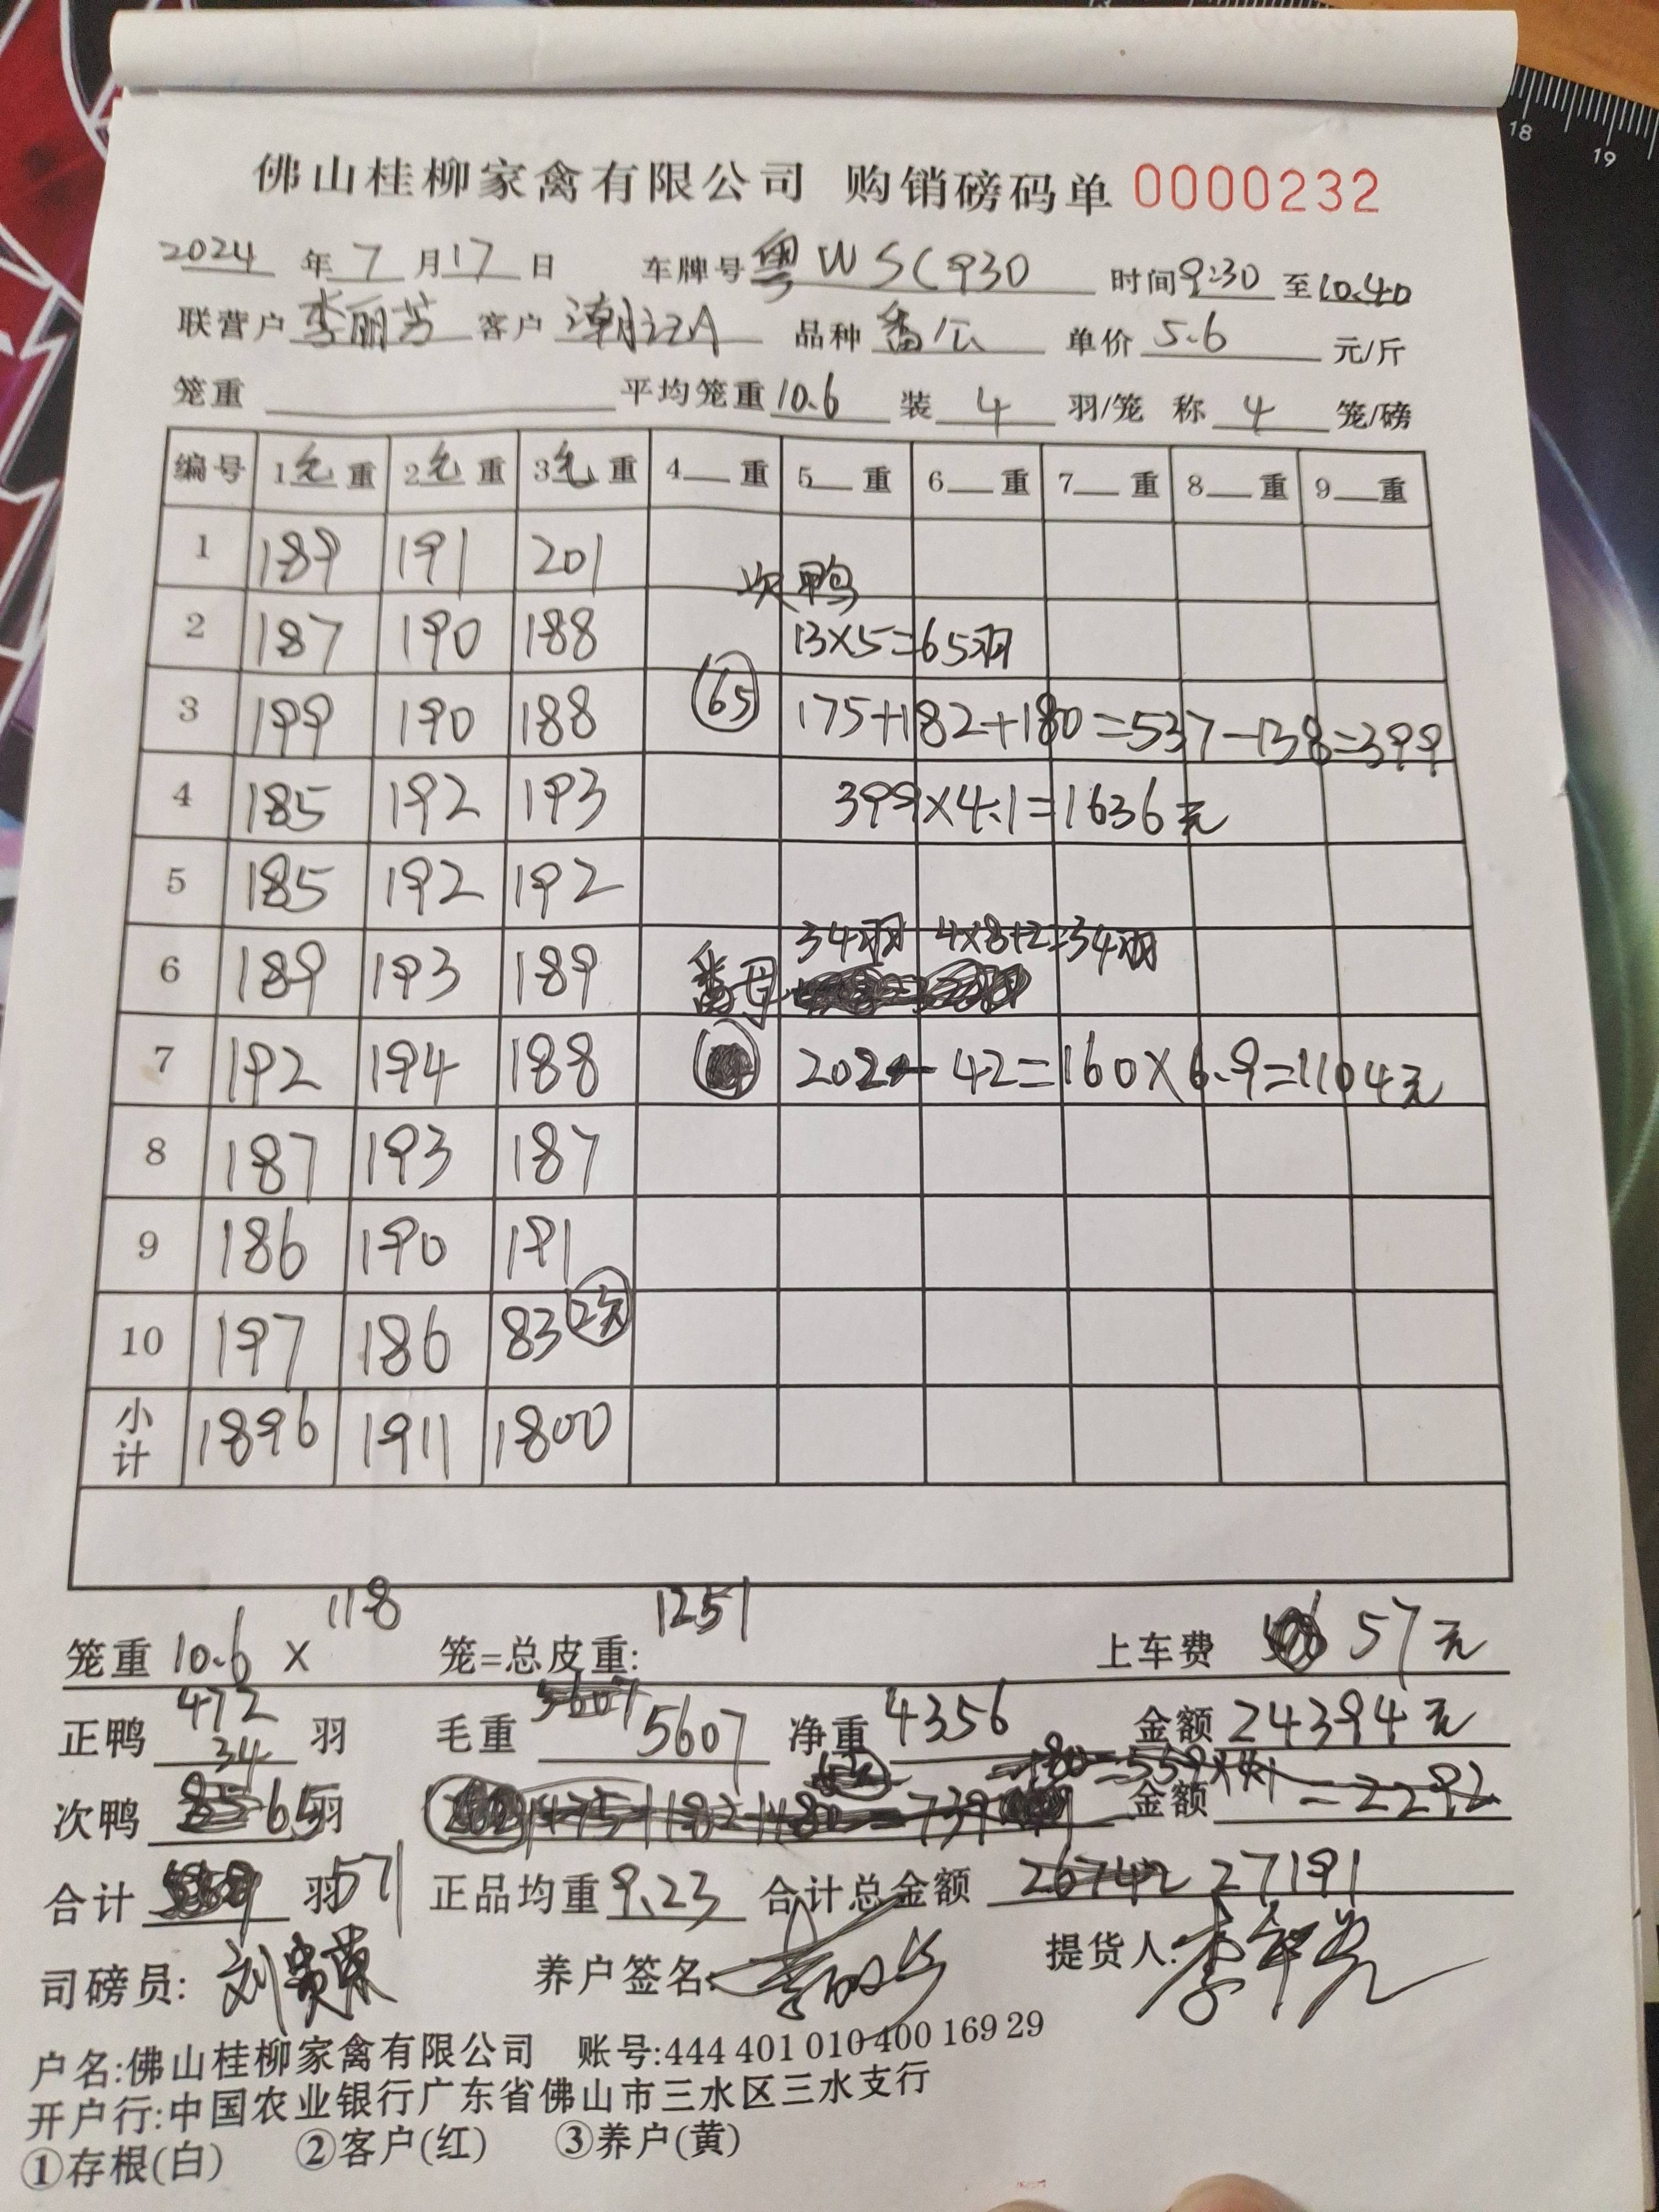 佛山桂柳家禽有限公司 购销磅码单 0000232
2024 年 7 月 17 日 车牌号 粤WSC930 时间 9:30 至 10.40
联营户 李丽芳 客户 潮记A 品种 番公 单价 5.6 元/斤
笼重 平均笼重 10.6 装 4 羽/笼 称 4 笼/磅
编号 1毛重 2毛重 3毛重 4 重 5 重 6 重 7 重 8 重 9 重
1 189 191 201
次鸭
2 187 190 188 13×5=65羽
3 199 190 188 65 175+182+180=537-138=399
4 185 192 193 399×4.1=1636元
5 185 192 192
34羽 4×8+2=34羽
6 189 193 189 番母
7 192 194 188 202-42=160×6.9=1104元
8 187 193 187
9 186 190 191
10 197 186 83 2笼
小计 1896 1911 1800
笼重 10.6 × 118 笼=总皮重: 1251 上车费 57元
正鸭 472 34 羽 毛重 5607 5607 净重 4356 金额 24394元
次鸭 65 羽 金额 =2292
合计 羽 571 正品均重 9.23 合计总金额 26742 27191
司磅员: 养户签名: 提货人:
户名:佛山桂柳家禽有限公司 账号:444 401 010 400 169 29
开户行:中国农业银行广东省佛山市三水区三水支行
①存根(白) ②客户(红) ③养户(黄)
18 19